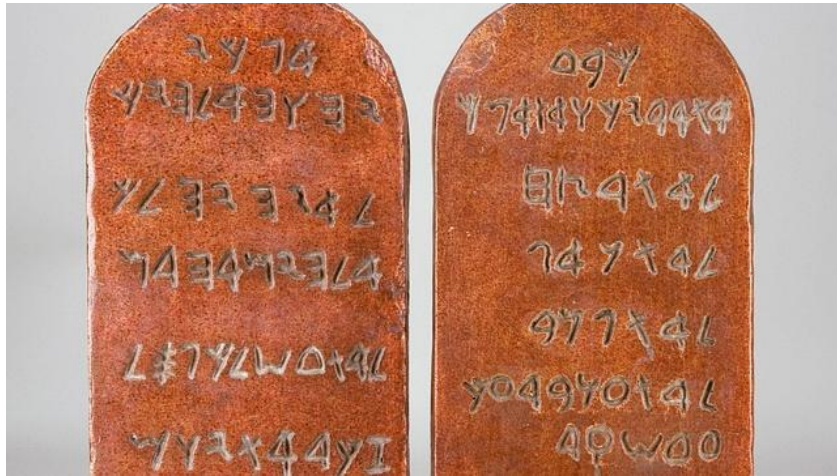 𐤀𐤍𐤊𐤉
𐤉𐤄𐤅𐤄𐤀𐤋𐤄𐤉𐤊
𐤋𐤀𐤉𐤄𐤉𐤄𐤋𐤊
𐤀𐤋𐤄𐤉𐤌𐤀𐤄𐤓𐤌
𐤋𐤀𐤕𐤏𐤔𐤋𐤊𐤐𐤎𐤋
𐤆𐤊𐤓𐤀𐤕𐤉𐤅𐤌
𐤊𐤁𐤃
𐤀𐤕𐤀𐤁𐤉𐤊𐤅𐤀𐤕𐤀𐤌𐤊
𐤋𐤀𐤕𐤓𐤑𐤇
𐤋𐤀𐤕𐤍𐤀𐤐
𐤋𐤀𐤕𐤂𐤍𐤁
𐤋𐤀𐤕𐤏𐤍𐤁𐤓𐤏𐤊
𐤏𐤃𐤔𐤒𐤓